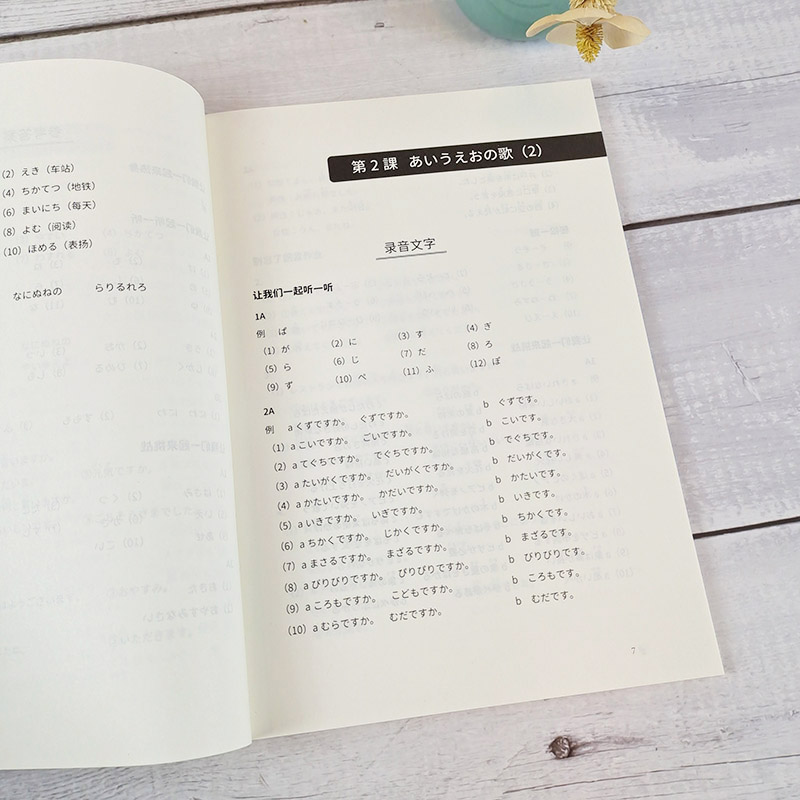 (2) えき（车站）
(4) ちかてつ（地铁）
(6) まいにち（每天）
(8) よむ（阅读）
(10) ほめる（表扬）
なにぬねの らりるれろ
第2課 あいうえおの歌（2）
录音文字
让我们一起听一听
1A
例 ば
(1) が (2) に (3) す (4) ぎ
(5) ら (6) じ (7) だ (8) ろ
(9) ず (10) べ (11) ふ (12) ぼ
2A
例 a くずですか。 ぐずですか。 b ぐずです。
(1) a こいですか。 ごいですか。 b こいです。
(2) a てぐちですか。 でぐちですか。 b でぐちです。
(3) a たいがくですか。 だいがくですか。 b だいがくです。
(4) a かたいですか。 かだいですか。 b かたいです。
(5) a いきですか。 いぎですか。 b いきです。
(6) a ちかくですか。 じかくですか。 b ちかくです。
(7) a まさるですか。 まざるですか。 b まざるです。
(8) a ぴりぴりですか。 びりびりですか。 b びりびりです。
(9) a ころもですか。 こどもですか。 b ころもです。
(10) a むらですか。 むだですか。 b むだです。
7